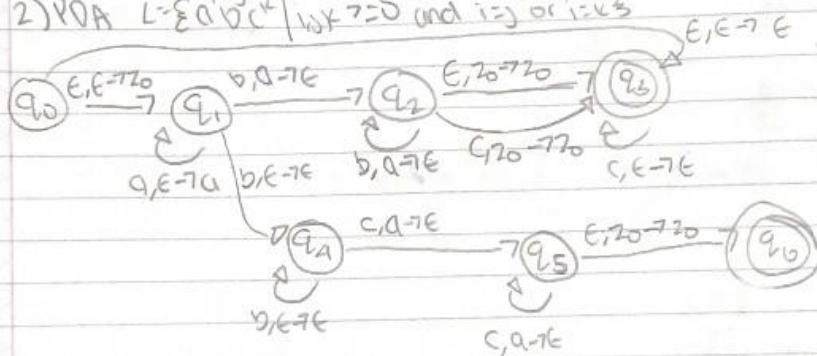 2) PDA L={a^i b^j c^k | i,j,k >=0 and i=j or i=k}
ε,ε→ε
q0 ε,ε→z0 q1 b,a→ε q2 ε,z0→z0 q3
a,ε→a b,ε→ε b,a→ε c,z0→z0 c,ε→ε
q4 c,a→ε q5 ε,z0→z0 q6
b,ε→ε c,a→ε